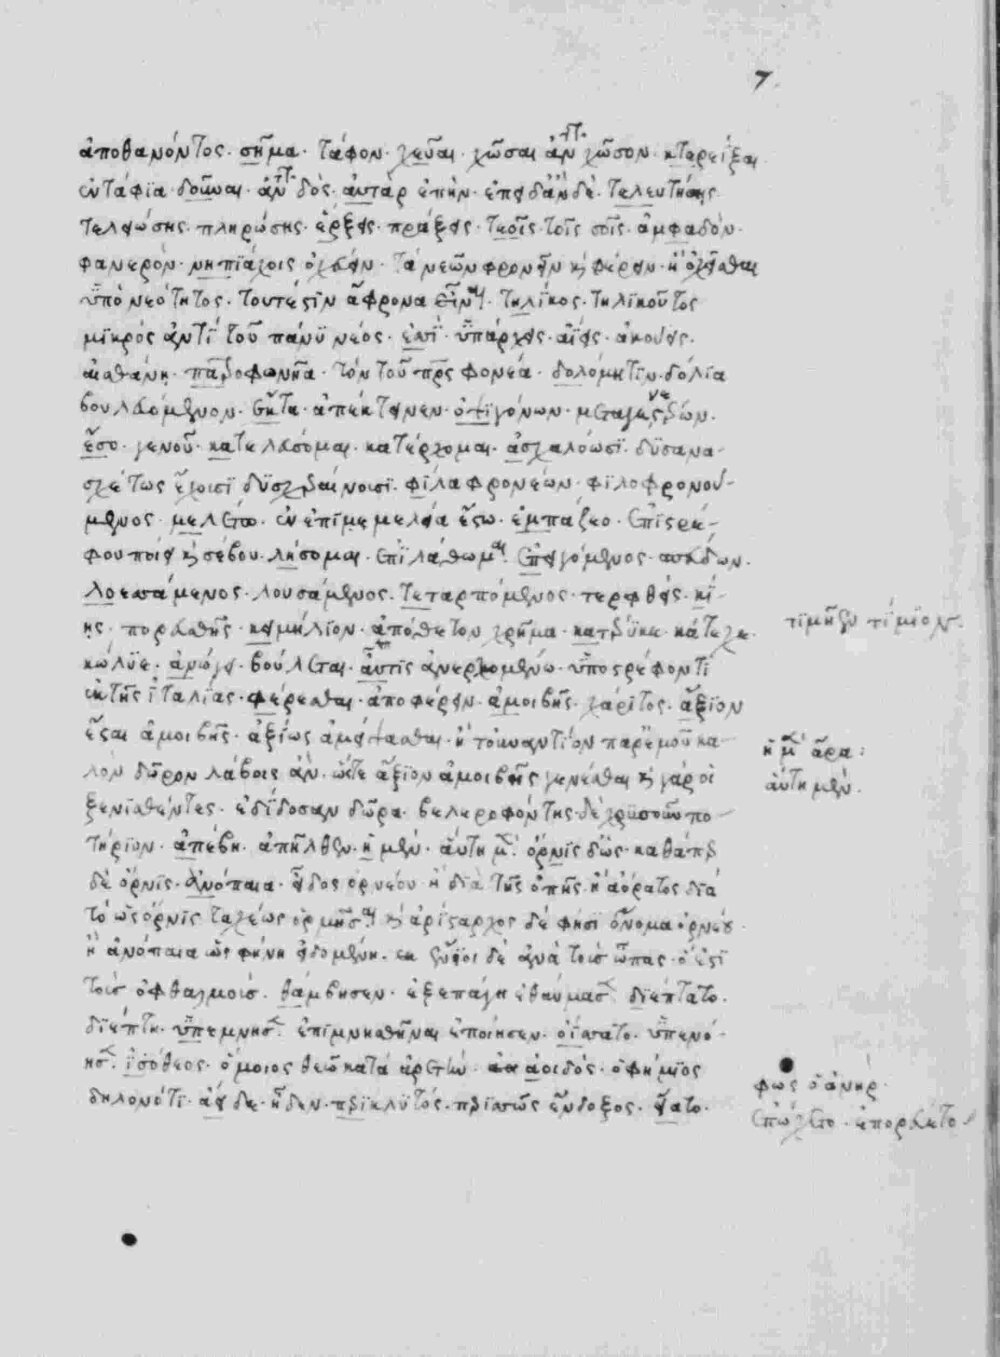 7
ἀποθανόντος· σῆμα· τάφον· χεῦαι χῶσαι ἀντ χῶσον· κτερείξαι
ἐντάφϊα δοῦναι· ἀντ δός· αὐτὰρ ἐπὴν· ἐπειδὰν δὲ· τελευτήσῃς
τελειώσῃς· πληρώσῃς· ἔρξῃς· πράξῃς· τεοῖς· τοῖς σοῖς· ἀμφαδόν·
φανερόν· νηπϊάχοις ὀχέειν· τὰ νεῶν φρονεῖν κὶ φέρειν· ἢ ὀχεῖσθαι
ὑπὸ νεότητος· τουτέστϊν ἄφρονα εἶναι· τηλίκος· τηλϊκοῦτος
μϊκρὸς ἀντὶ τοῦ πάνϋ νέος· ἐπὶ· ὑπάρχεις· ἀΐεις· ἀκούεις·
μαθάνῃ· πατροφονῆα· τὸν τοῦ πρς φονέα· δολόμητϊν· δόλια
βουλευόμενον· ἕκτα· ἀπέκτεινεν· ὀψϊγόνων· μεταγενεστέρων·
ἔσο· γενοῦ· κατελεύσομαι· κατέρχομαι· ἀσχαλόωσϊ· δϋσανα-
σχέτως ἔχοισϊ δϋσχεραίνοισϊ· φίλα φρονέων· φϊλοφρονού-
μενος· μελέτω· ἐν ἐπϊμεμελεία ἔσω· ἐμπάζεο· ἐπϊστρέ-
φου ποίει κὶ σέβου· λήσομαι· ἐπϊλάθωμαι· ἐπειγόμενος· σπεύδων·
λοεσσάμενος· λουσάμενος· τεταρπόμενος· τερφθείς· κϊ-
ῃς· πορευθῇς· κειμήλϊον· ἀπόθετον χρῆμα· κατέρϋκε· κάτεχε·
τϊμῆεν τίμϊον
κώλϋε· ἀνώγει· βούλεται· αὖτϊς ἀνερχομένῳ· ὑποστρέφοντϊ
ἐκ τῆς ἰταλίας· φέρεσθαι· ἀποφέρειν· ἀμοιβῆς· χάρϊτος· ἄξϊον
ἔσται ἀμοιβῆς· ἀξίως ἀμείψασθαι· ἢ τοὐναντίον παρ' ἐμοῦ κα-
ἡ μ ἄρα:
λὸν δῶρον λάβοις ἂν· ὥστε ἄξϊον ἀμοιβῆς γενέσθαι κὶ γὰρ οἱ
αὕτη μὲν·
ξενισθέντες· ἐδίδοσαν δῶρα· βελεροφόντης δὲ χρϋσοῦν πο-
τήρϊον· ἀπέβη· ἀπῆλθεν· ἡ μὲν· αὕτη μ· ὄρνϊς δὡς· καθάπερ
δὲ ὄρνϊς· ἀνόπαια· εἶδος ὀρνέου ἢ διὰ τῆς ὀπῆς· ἢ ἀόρατος δϊὰ
τὸ ὡς ὄρνϊς ταχέως ὁρμῆσαι· κὶ ἀρίσταρχος δέ φησϊ ὄνομα ὀρνέου
ἢ ἀνόπαια ὡς φήνη εἰδομένη· ἔνϊοι δὲ ἀνὰ τοὺς ὦπας· ὅ ἐστϊ
τοῖς ὀφθαλμοῖς· θάμβησεν· ἐξεπάγη ἐθαύμασ· δϊέπτατο·
δϊέπτη· ὑπέμνησ· ἐπϊμνησθῆναι ἐποίησεν· ὀΐσσατο· ὑπενό-
ησ· ϊσόθεος· ὅμοιος θεῷ κατὰ ἀρετὴν· ἀοιδός· ὁ φήμϊος
φὼς ὁ ἀνήρ·
δηλονότι· ἄειδε· ᾖδεν· περϊκλϋτός· περϊσσῶς ἔνδοξος· εἵατο·
ἐπῴχετο· ἐπορεύετο